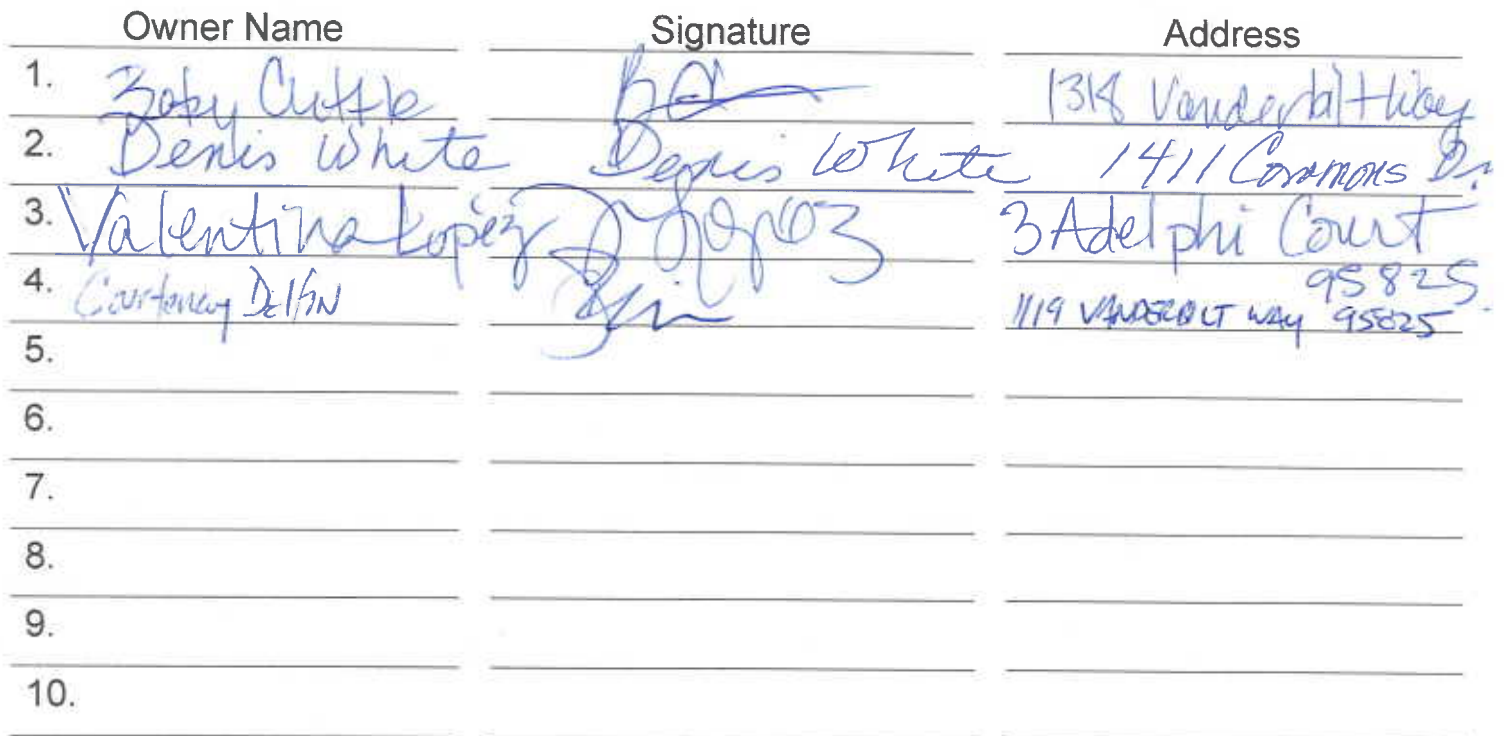 Owner Name Signature Address
1. Cuttle 1318 Vanderbilt Way
2. Denis White Denis White 1411 Commons Dr.
3. Valentina Lopez Lopez 3 Adelphi Court
95825
4. Courtenay Delfin 1119 VANDERBILT WAY 95825
5.
6.
7.
8.
9.
10.